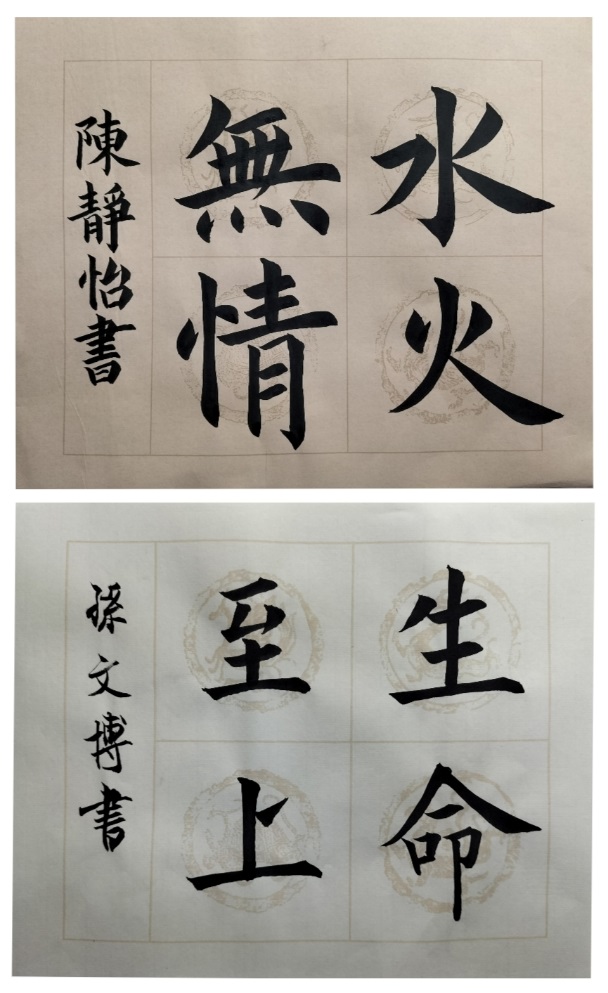 水火
無情
陳靜怡書
生命
至上
孫文博書